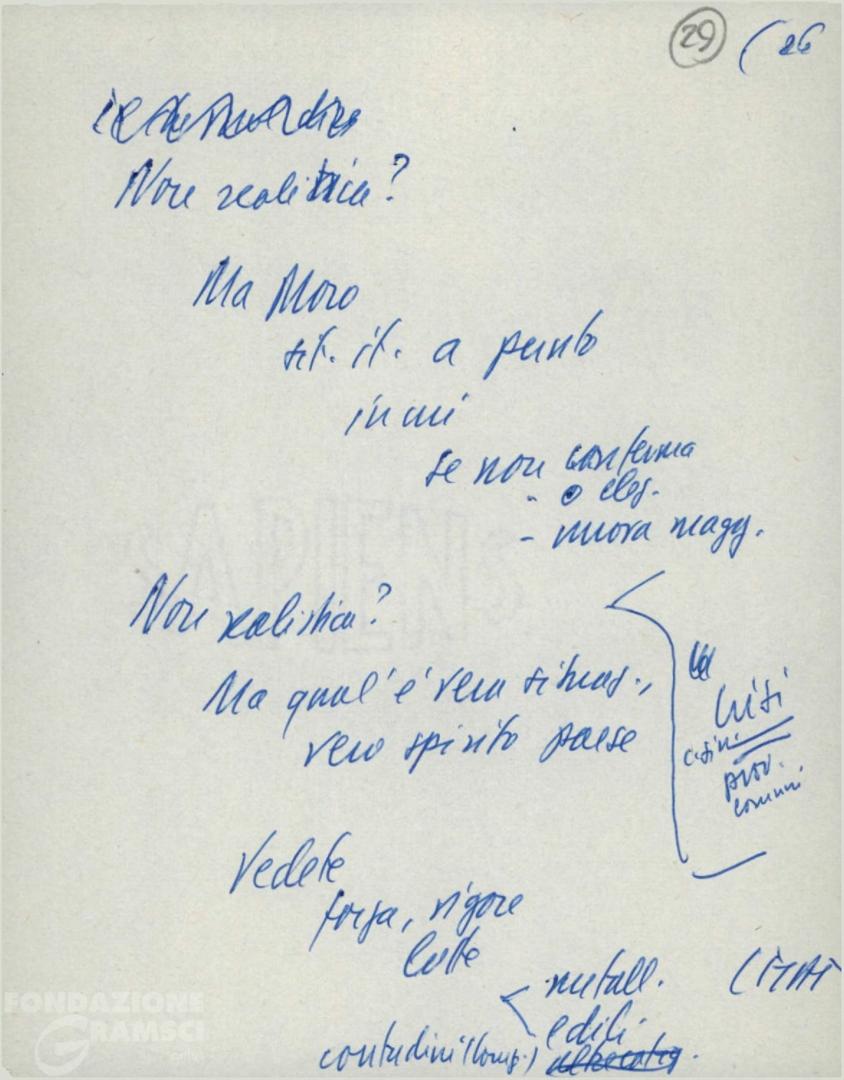 29 (26
Non realistica?
Ma Moro
sit. it. a punto
in cui
se non conferma
- o eleg.
- nuova magg.
Non realistica?
Ma qual'è vera situaz.,
vero spirito paese
Crisi
prov.
comuni
Vedete
forza, vigore
lotte
metall.
edili
contadini (
FONDAZIONE
GRAMSCI